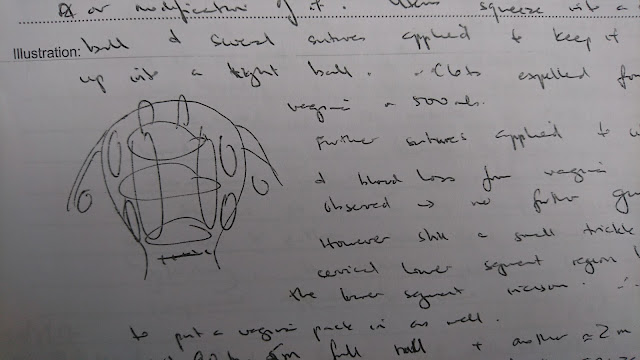 or modification of it. Uterus squeeze into a
Illustration: ball & several sutures applied to keep it
up into a tight ball. Clots expelled from
vagina ≈ 500mls.
Further sutures applied to
& blood loss from vagina
observed → no further
However still a small trickle
cervical lower segment region
the lower segment incision.
to put a vagina pack in as well.
5m full roll + another ≈ 2m